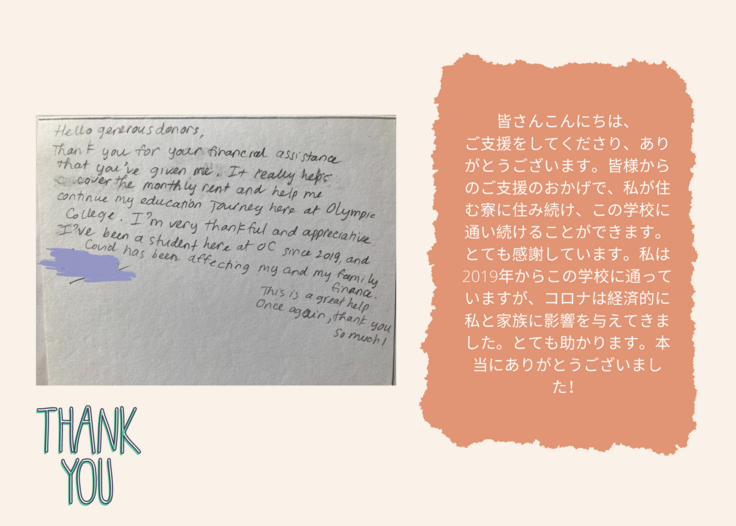 Hello generous donors,
Thank you for your financial assistance
that you've given me. It really helps
cover the monthly rent and help me
continue my education journey here at Olympic
College. I'm very thankful and appreciative
I've been a student here at OC since 2019, and
Covid has been affecting my and my family
finance.
This is a great help.
Once again, thank you
so much!
THANK
YOU
皆さんこんにちは、
ご支援をしてくださり、あり
がとうございます。皆様から
のご支援のおかげで、私が住
む寮に住み続け、この学校に
通い続けることができます。
とても感謝しています。私は
2019年からこの学校に通って
いますが、コロナは経済的に
私と家族に影響を与えてきま
した。とても助かります。本
当にありがとうございまし
た!